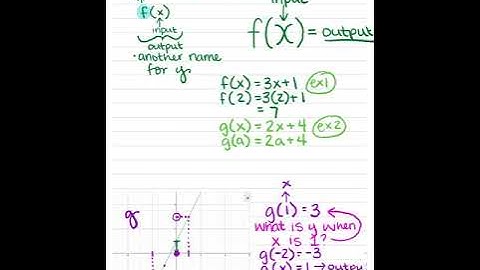 f(x)
input
output
• another name
for y
input
f(x) = output
f(x) = 3x+1 ex1
f(2) = 3(2)+1
= 7
g(x) = 2x+4 ex2
g(a) = 2a+4
g
x
g(1) = 3
what is y when
x is 1?
g(-2) = -3
g(x) = 1 → output